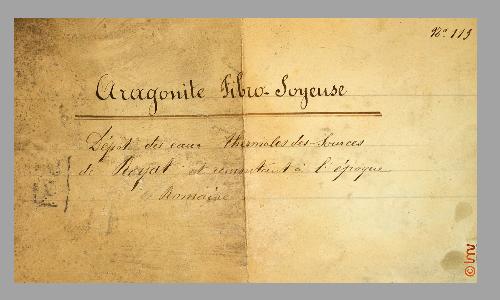 No. 113
Aragonite Fibro-Soyeuse
Dépot des eaux thermales des Sources
de Royat et remontant à l'époque
Romaine